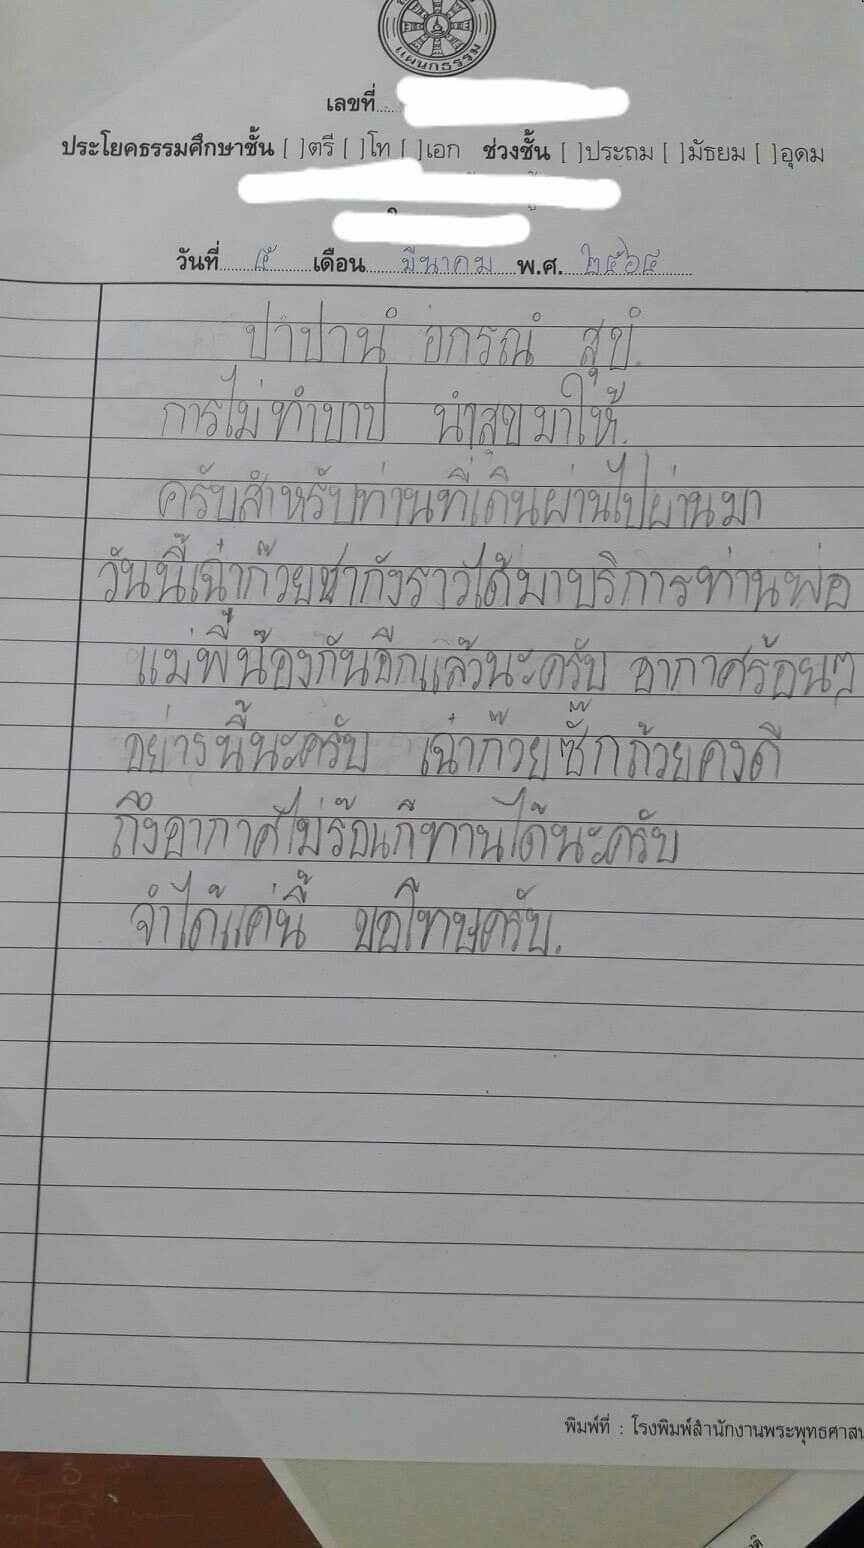 แผนกธรรม
เลขที่
ประโยคธรรมศึกษาชั้น [ ]ตรี [ ]โท [ ]เอก ช่วงชั้น [ ]ประถม [ ]มัธยม [ ]อุดม
วันที่ ๕ เดือน มีนาคม พ.ศ. ๒๕๖๕
ปาปานํ อกรณํ สุขํ.
การไม่ทำบาป นำสุขมาให้.
ครับสำหรับท่านที่เดินผ่านไปผ่านมา
วันนี้เฉาก๊วยชากังราวได้มาบริการท่านพ่อ
แม่พี่น้องกันอีกแล้วนะครับ อากาศร้อนๆ
อย่างนี้นะครับ เฉาก๊วยซั๊กถ้วยคงดี
ถึงอากาศไม่ร้อนก็ทานได้นะครับ
จำได้แค่นี้ ขอโทษครับ.
พิมพ์ที่ : โรงพิมพ์สำนักงานพระพุทธศาสน